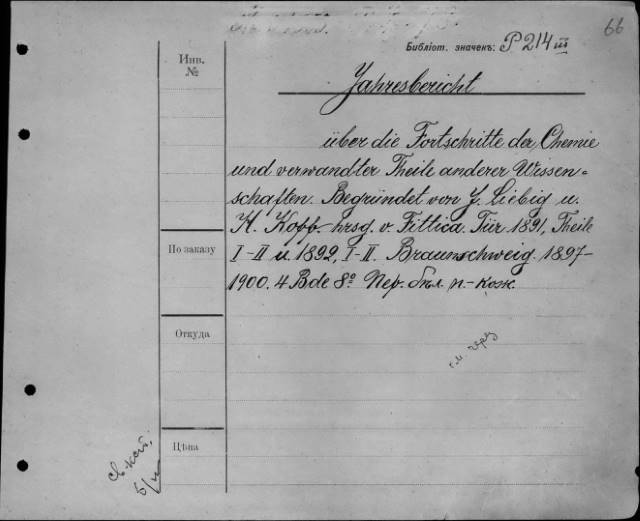 66
Библіот. значекъ: P 214 III
Инв. №
Jahresbericht
über die Fortschritte der Chemie
und verwandter Theile anderer Wissen-
schaften. Begründet von J. Liebig u.
H. Kopp hrsg. v. Fittica. Für 1891, Theile
I-II u. 1892, I-II. Braunschweig. 1897-
1900. 4 Bde 8º Пер. бкл. п.-кож.
По заказу
Откуда
Цѣна